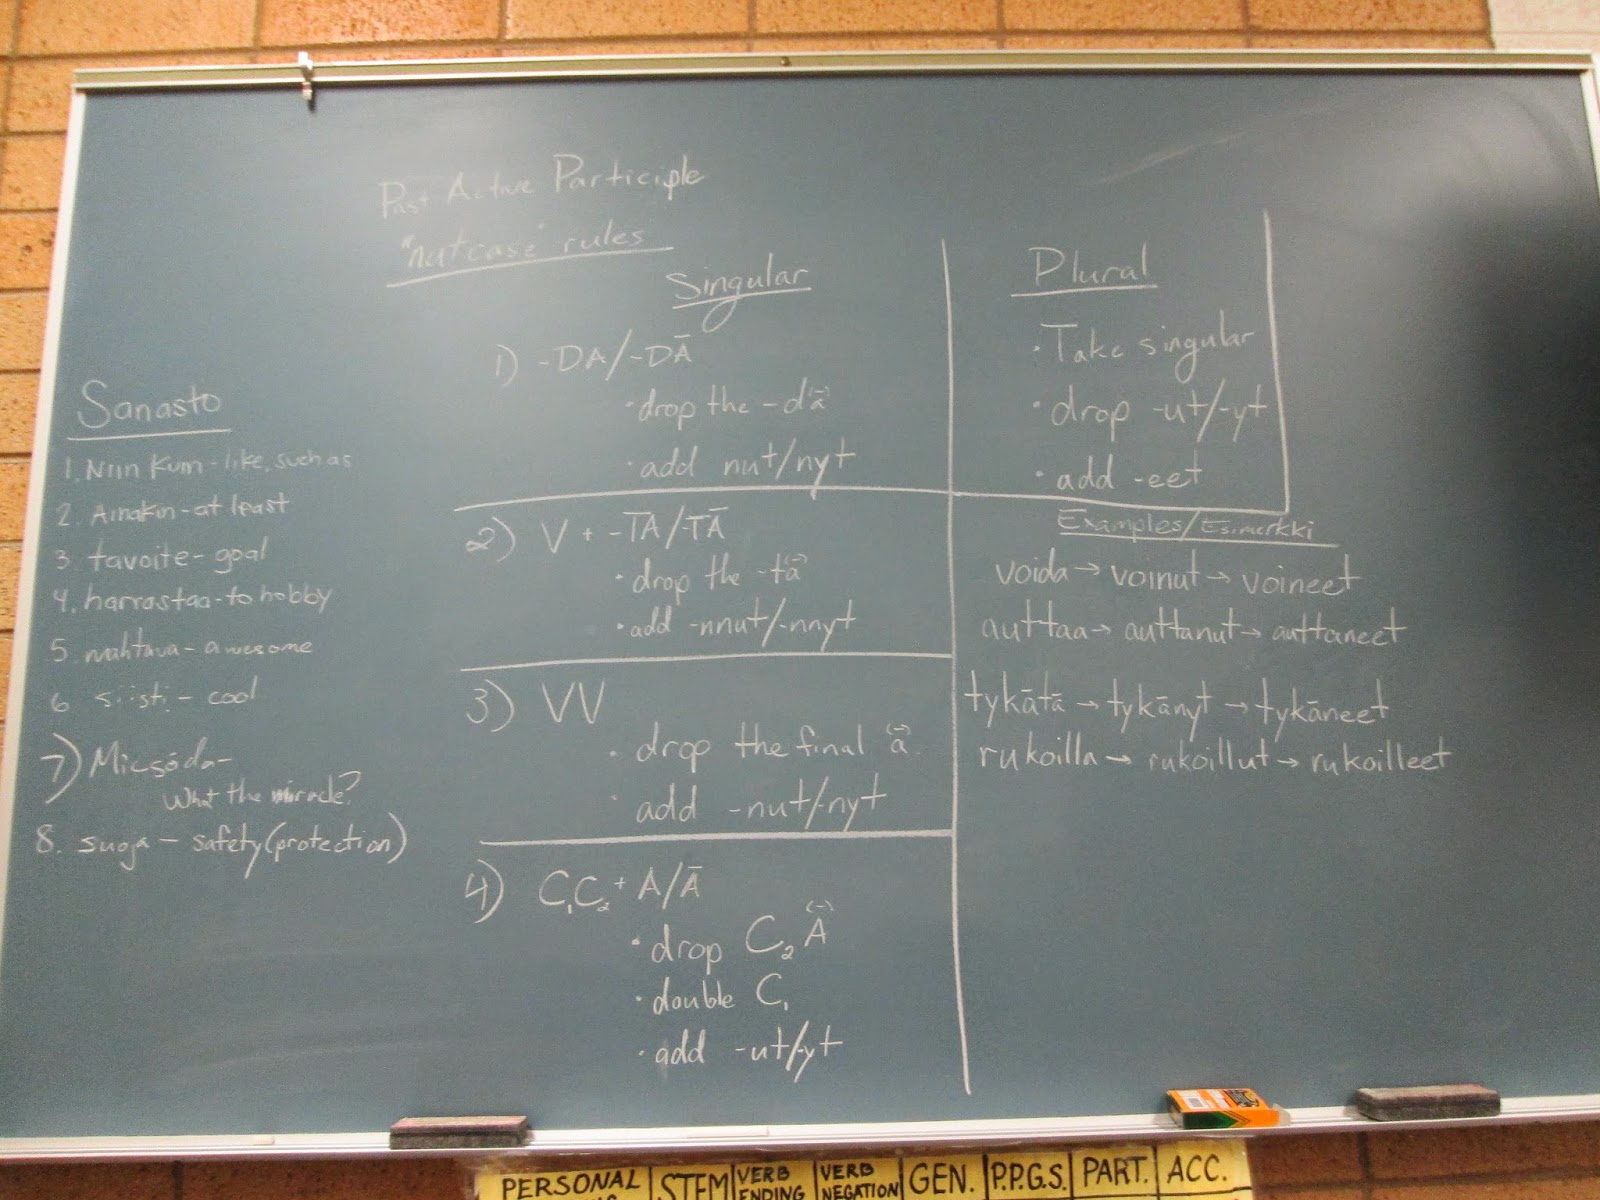 Past Active Participle
"nutcase" rules
Sanasto
1. Niin Kuin - like, such as
2. Ainakin - at least
3. tavoite - goal
4. harrastaa - to hobby
5. mahtava - awesome
6 siisti - cool
7) Micsóda -
What the miracle?
8. suoja - safety (protection)
Singular
1) -DA/-DĀ
· drop the -dā(-)
· add nut/nyt
2) V + -TA/-TĀ
· drop the -tā(-)
· add -nnut/-nnyt
3) VV
· drop the final ā(-).
· add -nut/-nyt
4) C₁C₂ + A/Ā
· drop C₂ Ā(-)
· double C₁
· add -ut/-yt
Plural
· Take singular
· drop -ut/-yt
· add -eet
Examples/Esimerkki
voida → voinut → voineet
auttaa → auttanut → auttaneet
tykātā → tykānyt → tykāneet
rukoilla → rukoillut → rukoilleet
PERSONAL
STEM
VERB
ENDING
VERB
NEGATION
GEN.
P.P.G.S.
PART.
ACC.